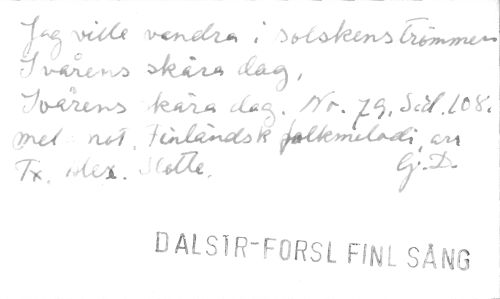 Jag ville vandra i solskenströmmen
I vårens skära dag,
I vårens skära dag. No. 79, Sid. 108.
mel. not. Finländsk folkmelodi, arr
Tx. Alex. Slotte. G. D.
DALSTR-FORSL FINL SÅNG